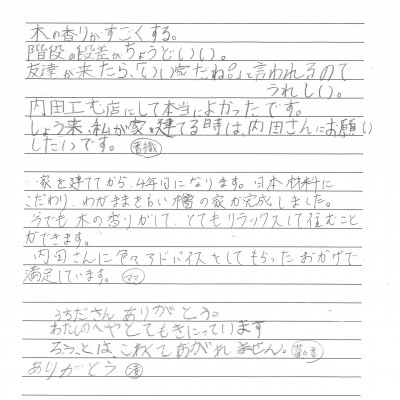 木の香りがすごくする。
階段の段差がちょうどいい。
友達が来たら、「いい家だね。」と言われるので
うれしい。
内田工務店にして本当によかったです。
しょう来、私が家を建てる時は、内田さんにお願い
したいです。
家を建ててから、4年目になります。日本材料に
こだわり、わがままをいい檜の家が完成しました。
今でも木の香りがして、とてもリラックスして住むこと
ができます。
内田さんに色々アドバイスをしてもらったおかげで
満足しています。 ママ
うちださんありがとう。
わたしのへやとてもきにっています
ろうかは、こわくてあがれません。
ありがとう